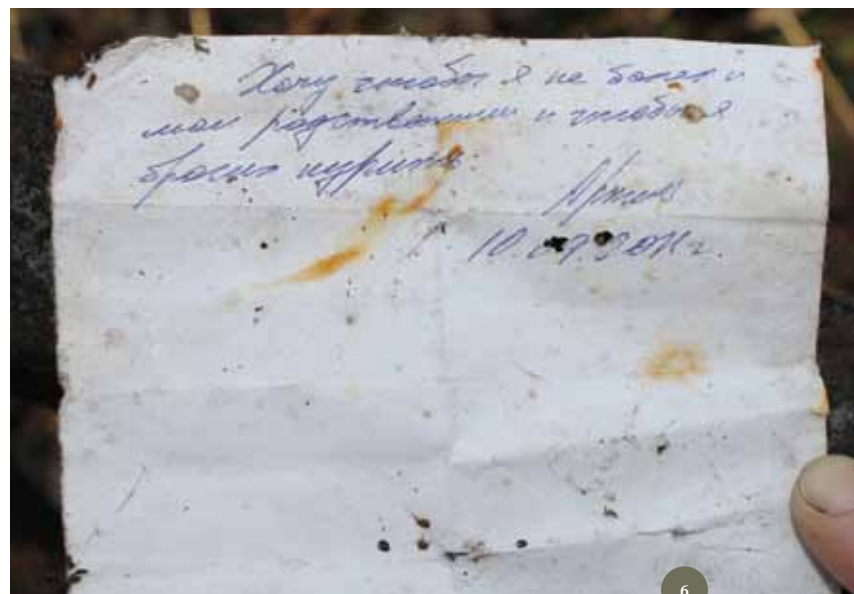 Хочу чтобы я не болел и
мои родственники и чтобы я
бросил курить.
Артем
10.09.2011г.
6